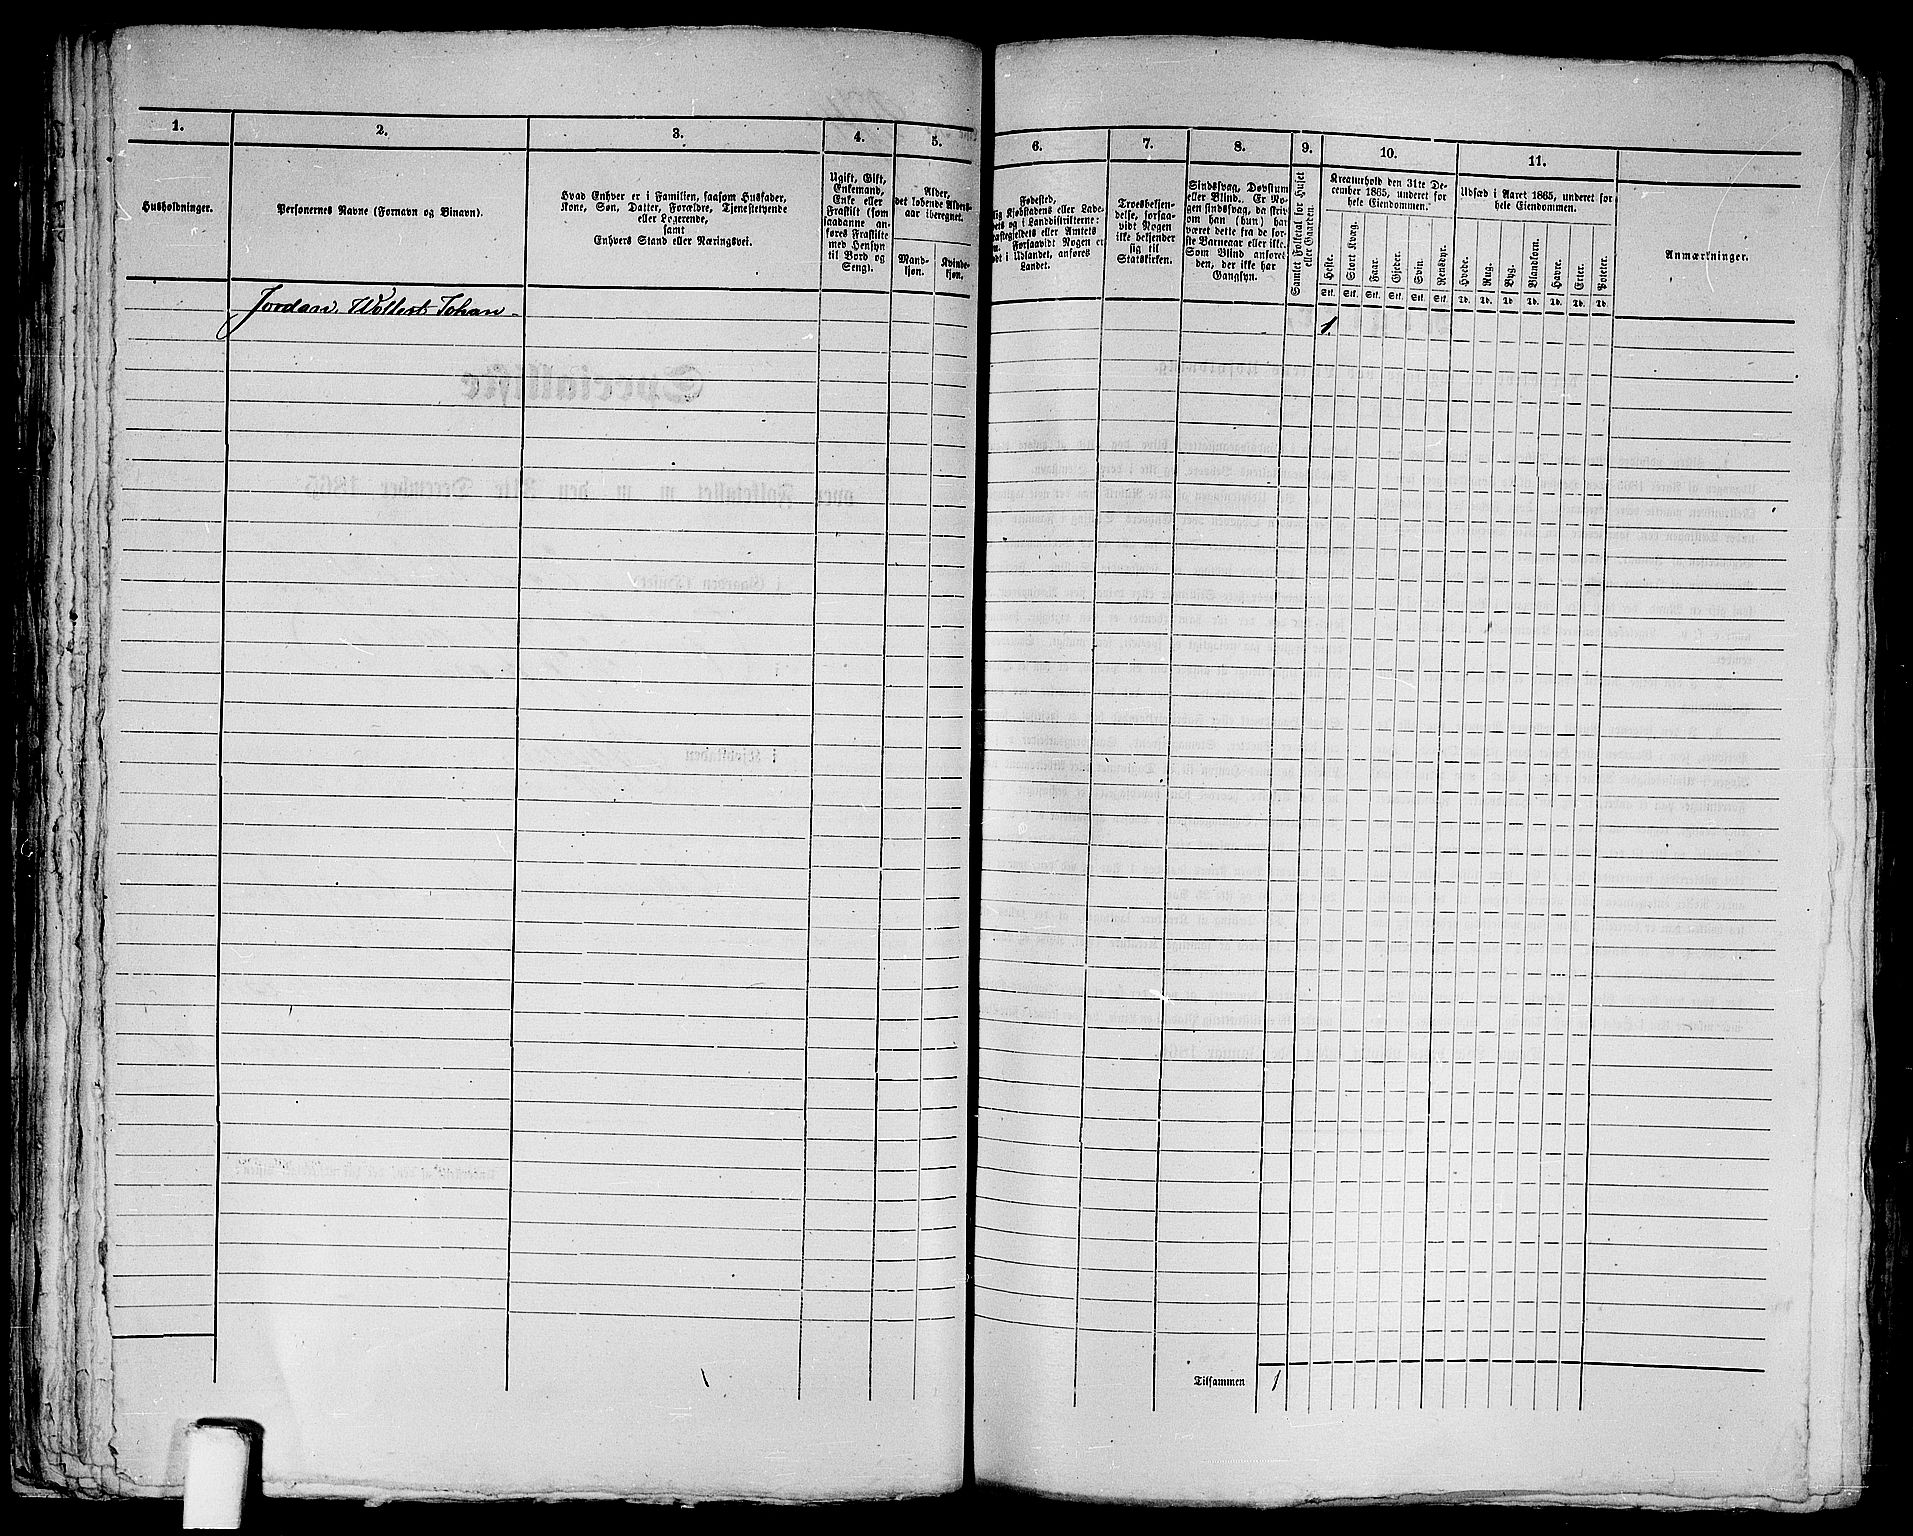 1.
2.
3.
4.
5.
6.
7.
8.
9.
10.
11.
Husholdninger.
Personernes Navne (Fornavn og Binavn).
Hvad Enhver er i Familien, saasom Husfader,
Kone, Søn, Datter, Forældre, Tjenestetyende
eller Logerende,
samt
Enhvers Stand eller Næringsvei.
Ugift, Gift,
Enkemand,
Enke eller
Fraskilt (som
saadanne an-
føres Fraskilte
med Hensyn
til Bord og
Seng).
Alder,
det løbende Alders-
aar iberegnet.
Mand-
kjøn.
Kvinde-
kjøn.
Fødested,
lig Kjøbstadens eller Lade-
ets og i Landdistrikterne:
ræstegjeldets eller Amtets
Forsaavidt Nogen er
dt i Udlandet, anføres
Landet.
Troesbekjen-
delse, forsaa-
vidt Nogen
ikke bekjender
sig til
Statskirken.
Sindssvag, Døvstum
eller Blind. Er No-
gen sindssvag, da skriv
om han (hun) har
været dette fra de før-
ste Barneaar eller ikke.
Som Blind anføres
den, der ikke har
Gangsyn.
Samlet Folketal for Huset
eller Gaarden.
Kreaturhold den 31te De-
cember 1865, underet for
hele Eiendommen.
Heste.
Stort Kvæg.
Faar.
Gjeder.
Svin.
Rensdyr.
Stk.
Stk.
Stk.
Stk.
Stk.
Stk.
Udsæd i Aaret 1865, underet for
hele Eiendommen.
Hvede.
Rug.
Byg.
Blandkorn.
Havre.
Erter.
Poteter.
Td.
Td.
Td.
Td.
Td.
Td.
Td.
Anmærkninger.
Jordan, Wollert Johan
1.
Tilsammen 1